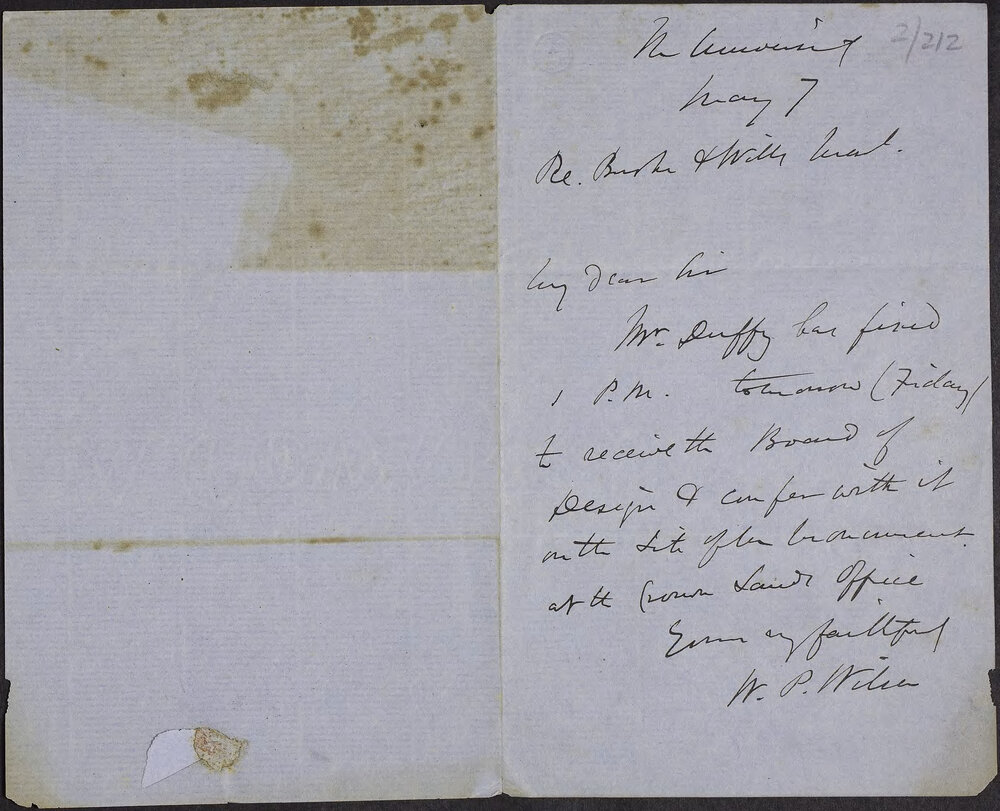 2/212
The University
May 7
Re. Burke & Wills Mont.
My dear Sir
Mr. Duffy has fixed
1 P.M. tomorrow (Friday)
to receive the Board of
Design & confer with it
on the Site of the Monument
at the Crown Lands Office
Yours faithful
W. P. Wilson